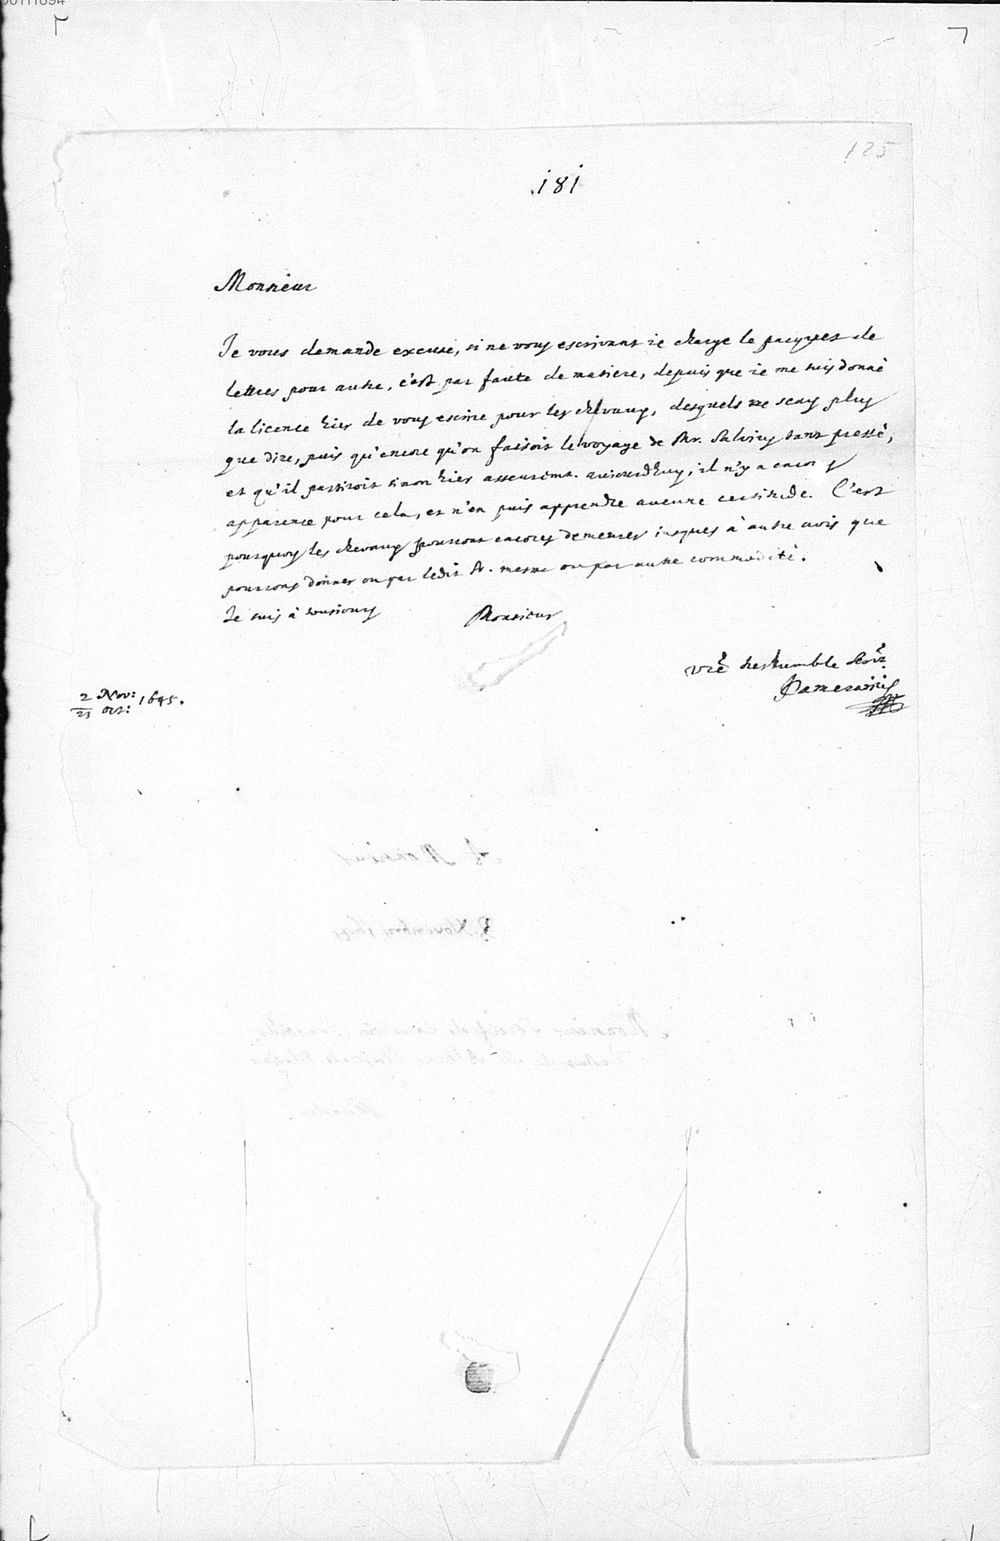 00111894
125
181
Monsieur
Je vous demande excuse, si ne vous escrivant ie charge le pacquet de
lettres pour autre, c'est par faute de matiere, depuis que ie me suis donné
la licence hier de vous escrire pour les chevaux, desquels ne scay plus
que dire, puis qu'encore qu'on faisoit le voyage de Mr. Salvius tant pressé,
et qu'il partiroit sinon hier asseurémt. auiourdhuy, il n'y a encor
apparence pour cela, et n'en puis apprendre aucune certitude. C'est
pourquoy les chevaux pourront encores demeurer iusques à autre avis que
pourrons donner ou par ledit Sr. mesme ou par autre commodité.
Je suis à tousiours Monsieur
vre tres humble
2 Nov: 1645.
23 oct:
A Monsieur
Monsieur